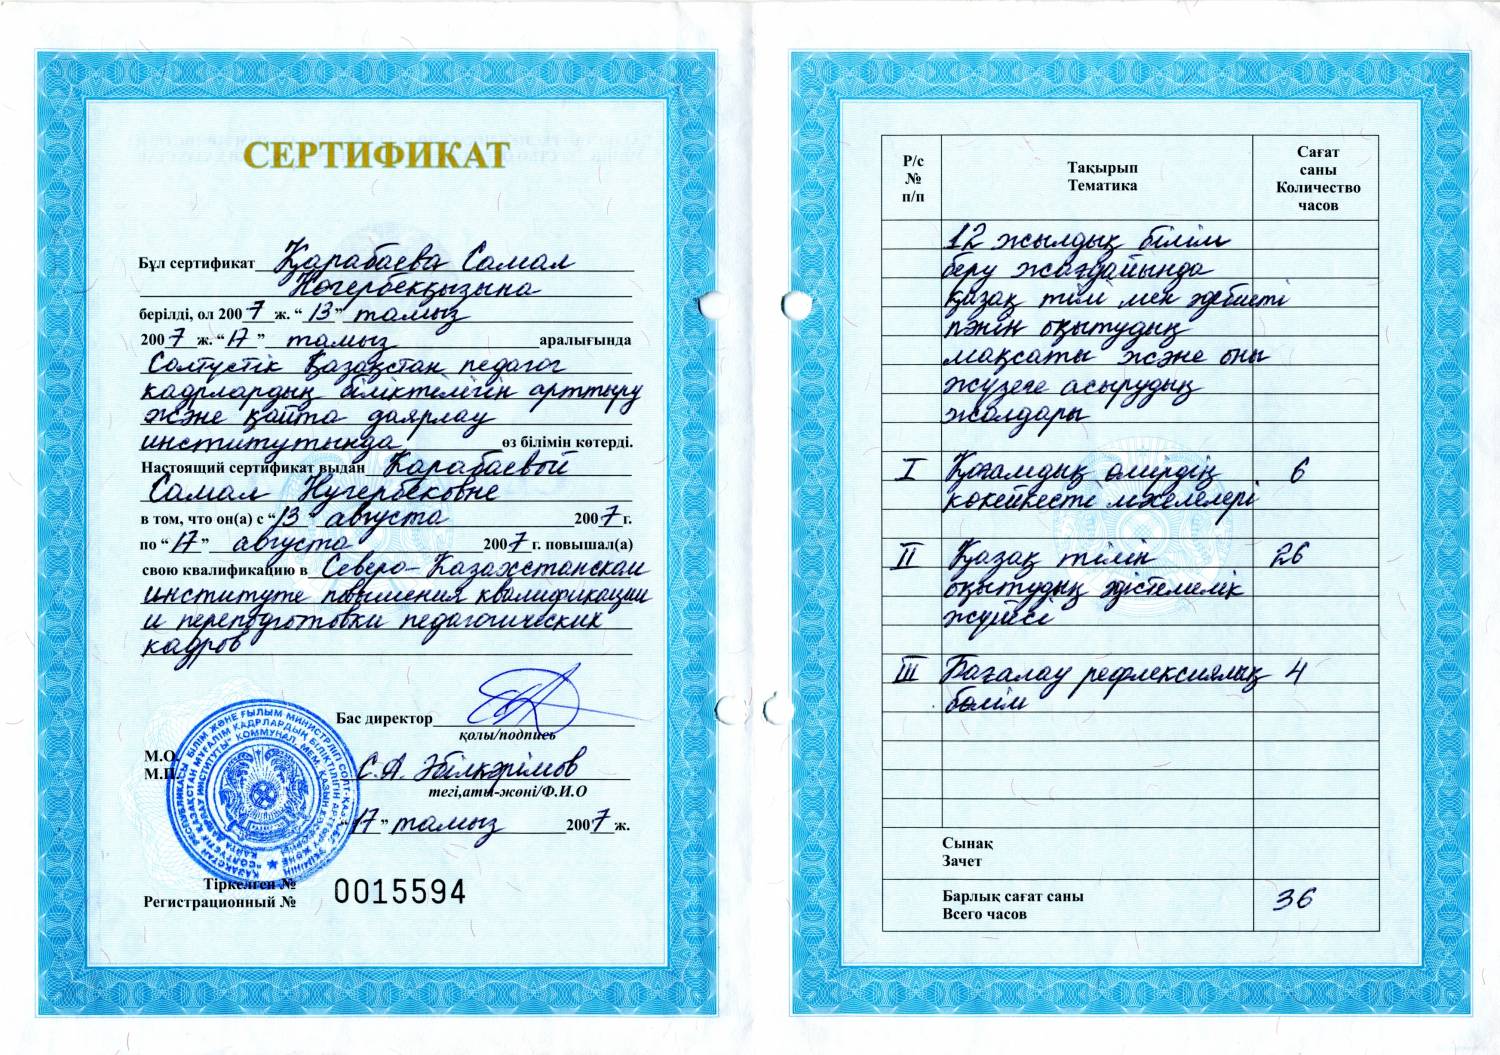 СЕРТИФИКАТ
Бұл сертификат Қарабаева Самал
Нөгербекқызына
берілді, ол 2007 ж. “13” тамыз
2007 ж. “17” тамыз аралығында
Солтүстік Қазақстан педагог
кадрлардың біліктелігін арттыру
және қайта даярлау
институтында өз білімін көтерді.
Настоящий сертификат выдан Карабаевой
Самал Нугербековне
в том, что он(а) с “13” августа 2007 г.
по “17” августа 2007 г. повышал(а)
свою квалификацию в Северо-Казахстанском
институте повышения квалификации
и переподготовки педагогических
кадров
Бас директор
қолы/подпись
М.О.
М.П.
С.А. Әбілкәрімов
тегі,аты-жөні/Ф.И.О
“17” тамыз 2007 ж.
Тіркелген №
Регистрационный № 0015594
Р/с
№
п/п
Тақырып
Тематика
Сағат
саны
Количество
часов
12 жылдық білім
беру жағдайында
қазақ тілі мен әдебиеті
пәнін оқытудың
мақсаты және оны
жүзеге асырудың
жолдары
I Қоғамдық өмірдің 6
көкейкесті мәселелері
II Қазақ тілін 26
оқытудың әдістемелік
жүйесі
III Бағалау рефлексиялық 4
бөлім
Сынақ
Зачет
Барлық сағат саны
Всего часов 36